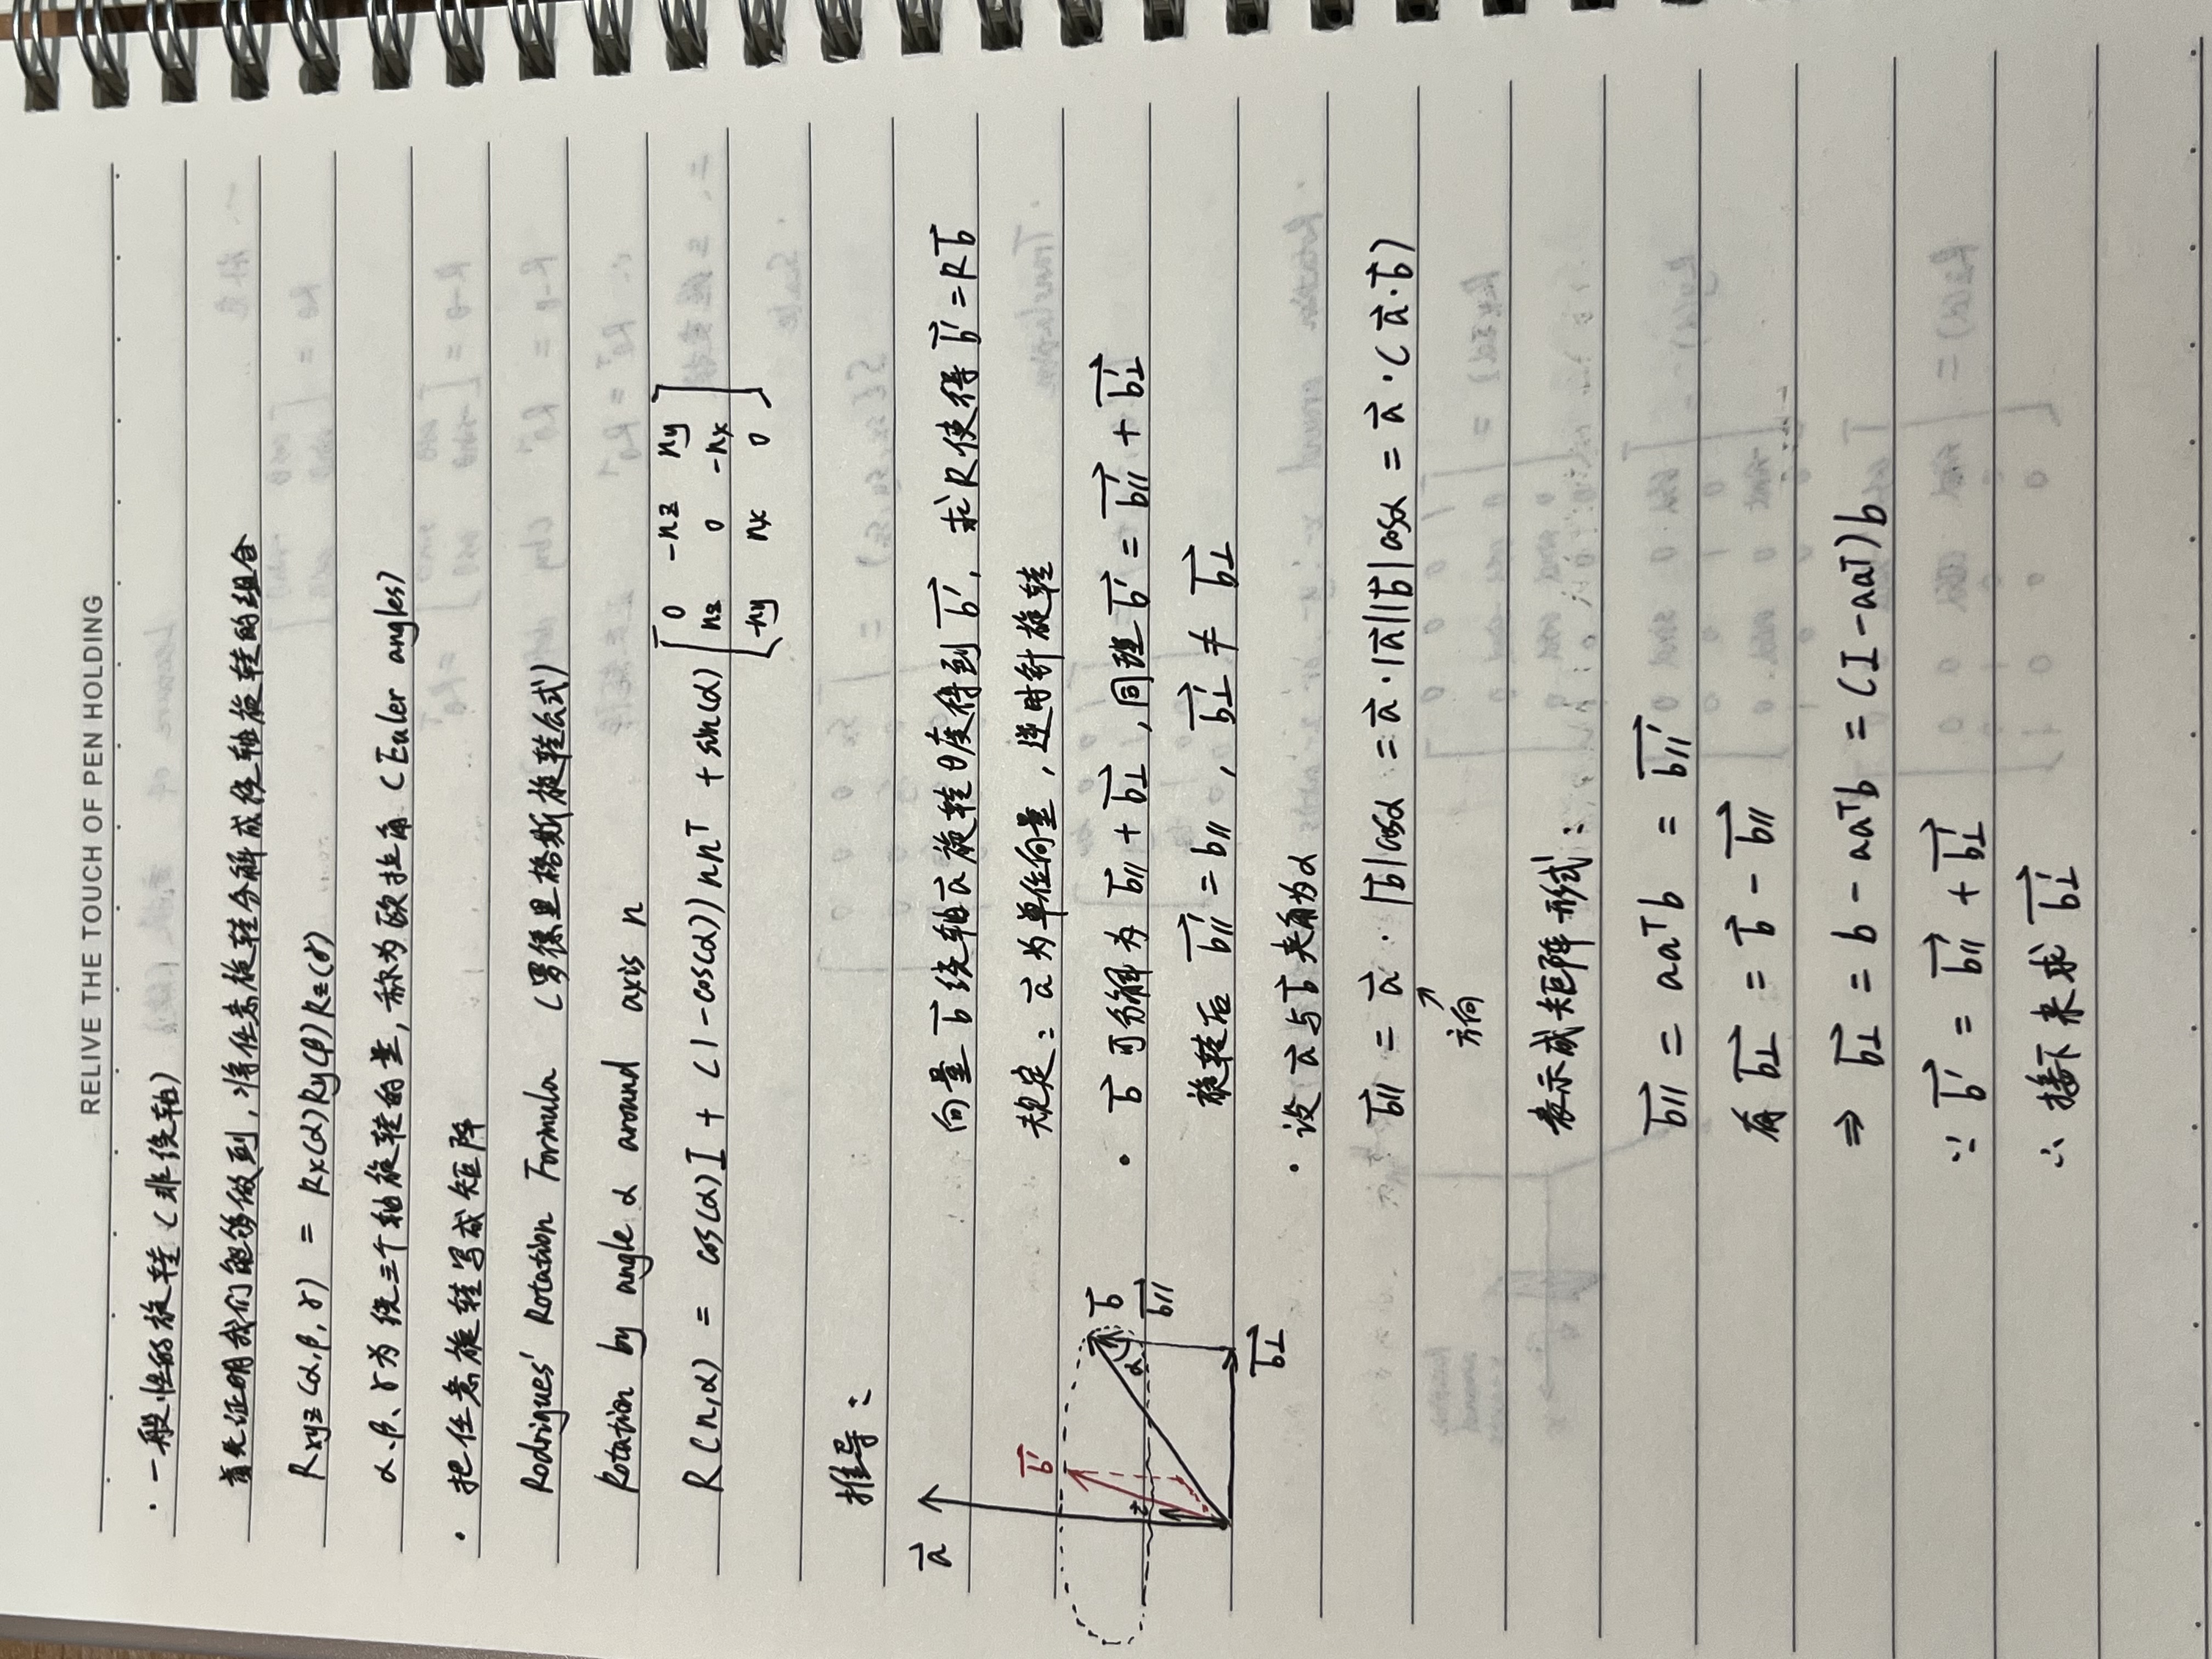 RELIVE THE TOUCH OF PEN HOLDING
· 一般性的旋转 (非绕轴)
首先证明我们能够做到, 将任意旋转分解成绕轴旋转的组合
Rxyz(α,β,γ) = Rx(α)Ry(β)Rz(γ)
α、β、γ为绕三个轴旋转的量, 称为欧拉角 (Euler angles)
· 把任意旋转写成矩阵
Rodrigues' Rotation Formula (罗德里格斯旋转公式)
Rotation by angle α around axis n
R(n,α) = cos(α)I + (1-cos(α))nnᵀ + sin(α) [0 -nz ny
nz 0 -nx
-ny nx 0]
推导:
a⃗
b⃗'
α
b⃗
b⃗∥
b⃗⊥
向量 b⃗ 绕轴 a⃗ 旋转 θ 度得到 b⃗', 求R使得 b⃗' = Rb⃗
规定: a⃗ 为单位向量, 逆时针旋转
· b⃗ 可分解为 b⃗∥ + b⃗⊥, 同理 b⃗' = b⃗∥' + b⃗⊥'
旋转后 b⃗∥' = b∥, b⃗⊥' ≠ b⃗⊥
· 设 a⃗ 与 b⃗ 夹角为α
b⃗∥ = a⃗ · |b⃗|cosα = a⃗ · |a⃗||b⃗|cosα = a⃗ · (a⃗·b⃗)
↑
方向
表示成矩阵形式:
b⃗∥ = aaᵀb = b⃗∥'
有 b⃗⊥ = b⃗ - b⃗∥
⇒ b⃗⊥ = b - aaᵀb = (I-aaᵀ)b
∵ b⃗' = b⃗∥ + b⃗⊥'
∴ 接下来求 b⃗⊥'